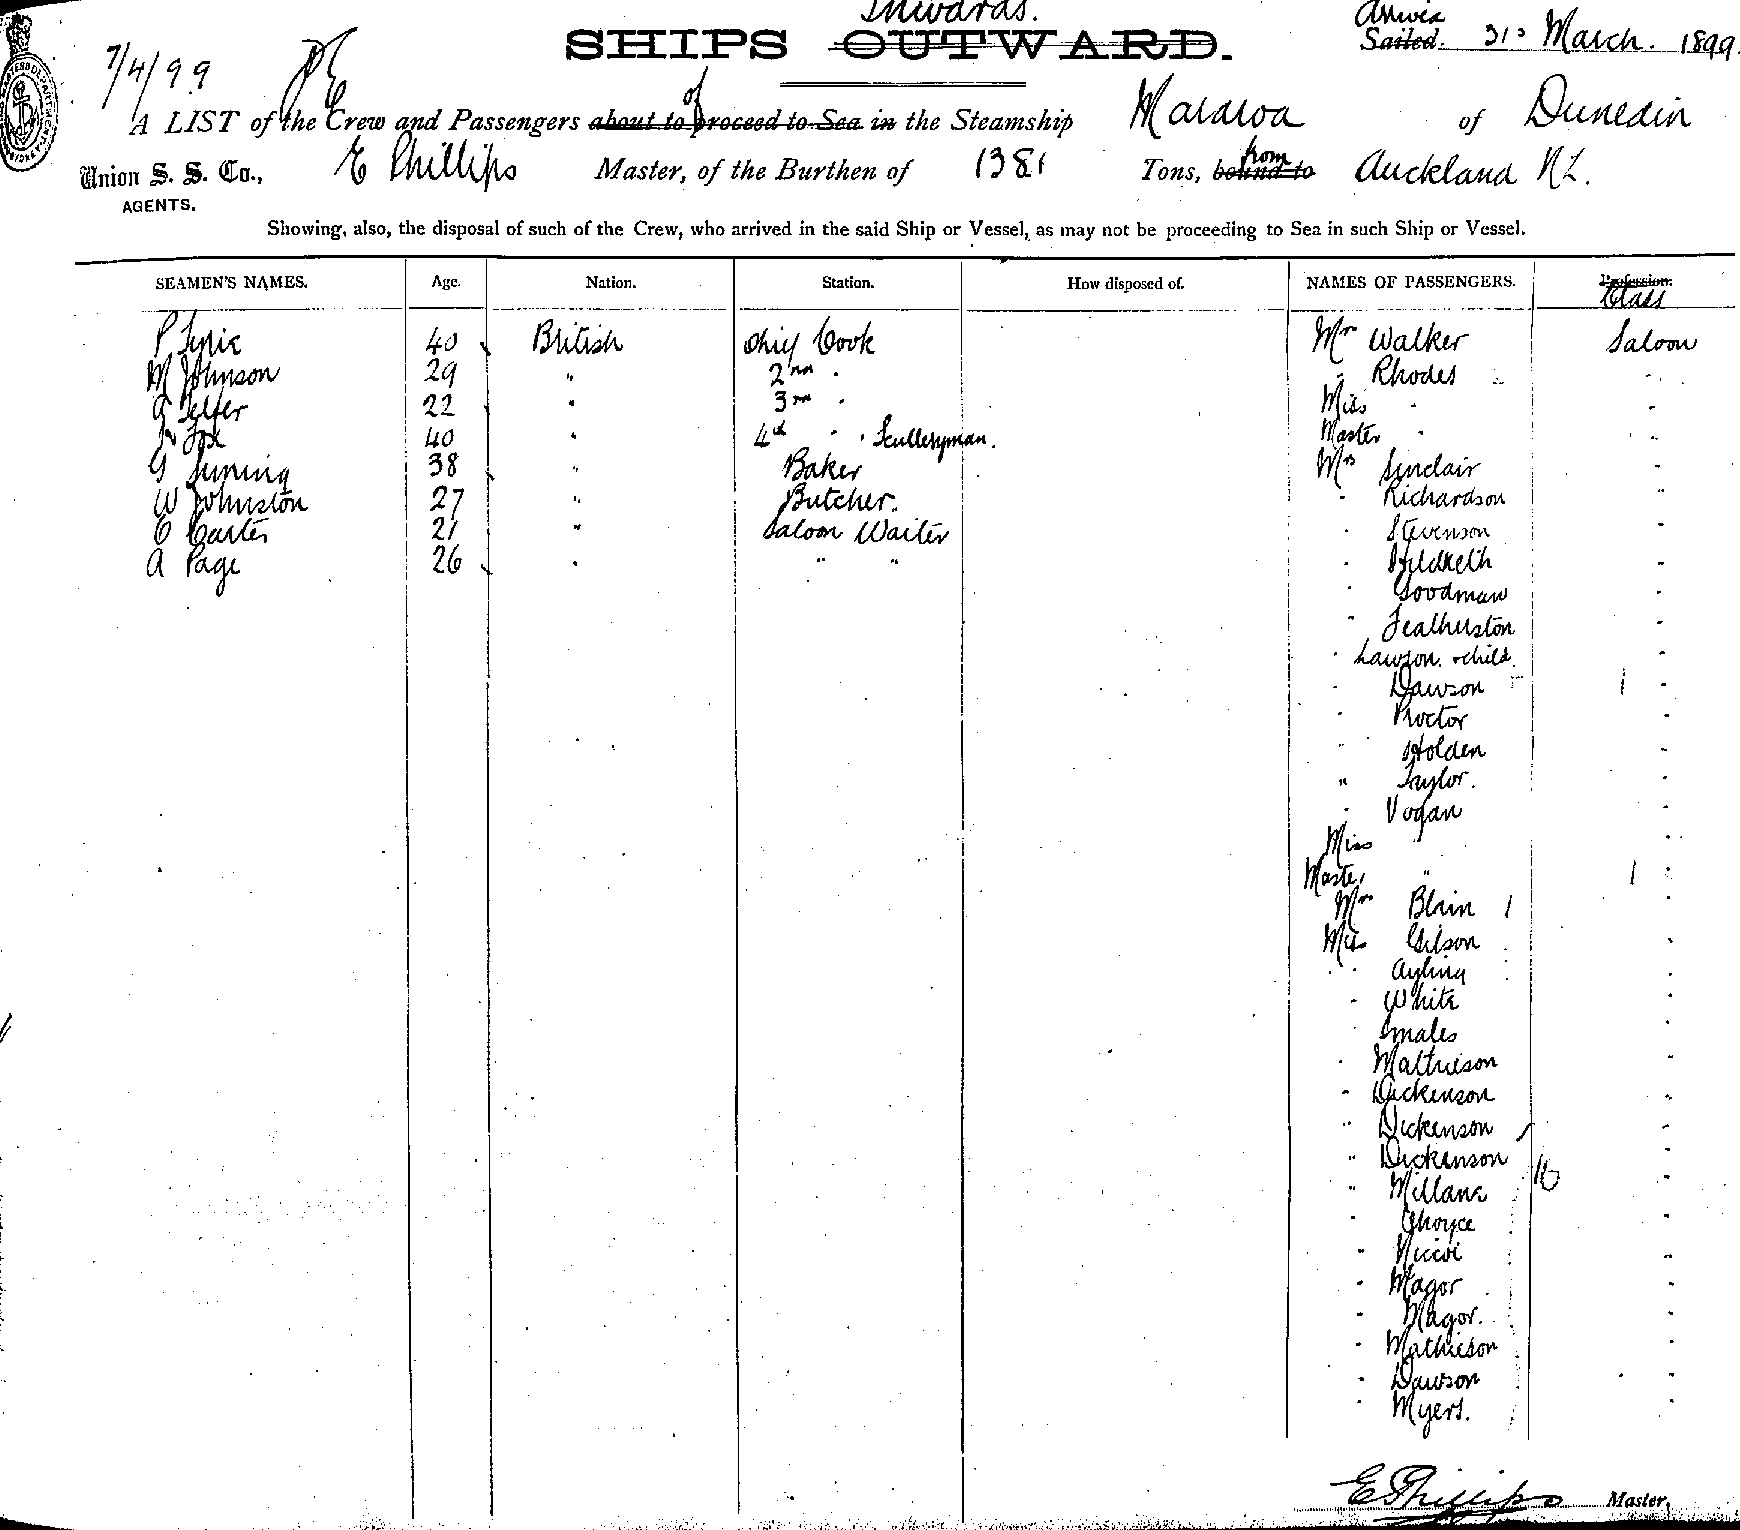 Inwards.
SHIPS OUTWARD.
Arrived
Sailed. 31st March. 1899.
7/4/99
of
A LIST of the Crew and Passengers about to proceed to Sea in the Steamship Mararoa of Dunedin
from
Union S. S. Co., E Phillips Master, of the Burthen of 1381 Tons, bound to Auckland NZ.
AGENTS.
Showing, also, the disposal of such of the Crew, who arrived in the said Ship or Vessel, as may not be proceeding to Sea in such Ship or Vessel.
SEAMEN'S NAMES. Age. Nation. Station. How disposed of. NAMES OF PASSENGERS. Profession.
Class
P 40 British Chief Cook Mrs Walker Saloon
M Johnson 29 " 2nd " " Rhodes "
G Telfer 22 " 3rd " Miss " "
Jn Fox 40 " 4th " . Sculleryman. Master " "
G 38 " Baker Mrs Sinclair "
W Johnston 27 " Butcher. " Richardson "
C Carter 21 " Saloon Waiter " Stevenson "
A Page 26 " " " " Hildreth "
" Goodman "
" Featherston "
" Lawson. + child. "
" Dawson 1 "
" Proctor "
" Holden "
" Taylor. "
" Vogan "
Miss "
Master " 1 "
Mrs Blain 1 "
Miss Gilson "
" Ayling "
" White "
" Smales "
" Mathieson "
" Dickenson "
" Dickenson "
" Dickenson "
" Millane "
" Choyce "
" Niccol "
" Magor "
" Magor. "
" Mathieson "
" Dawson "
" Myers. "
E Phillips Master.